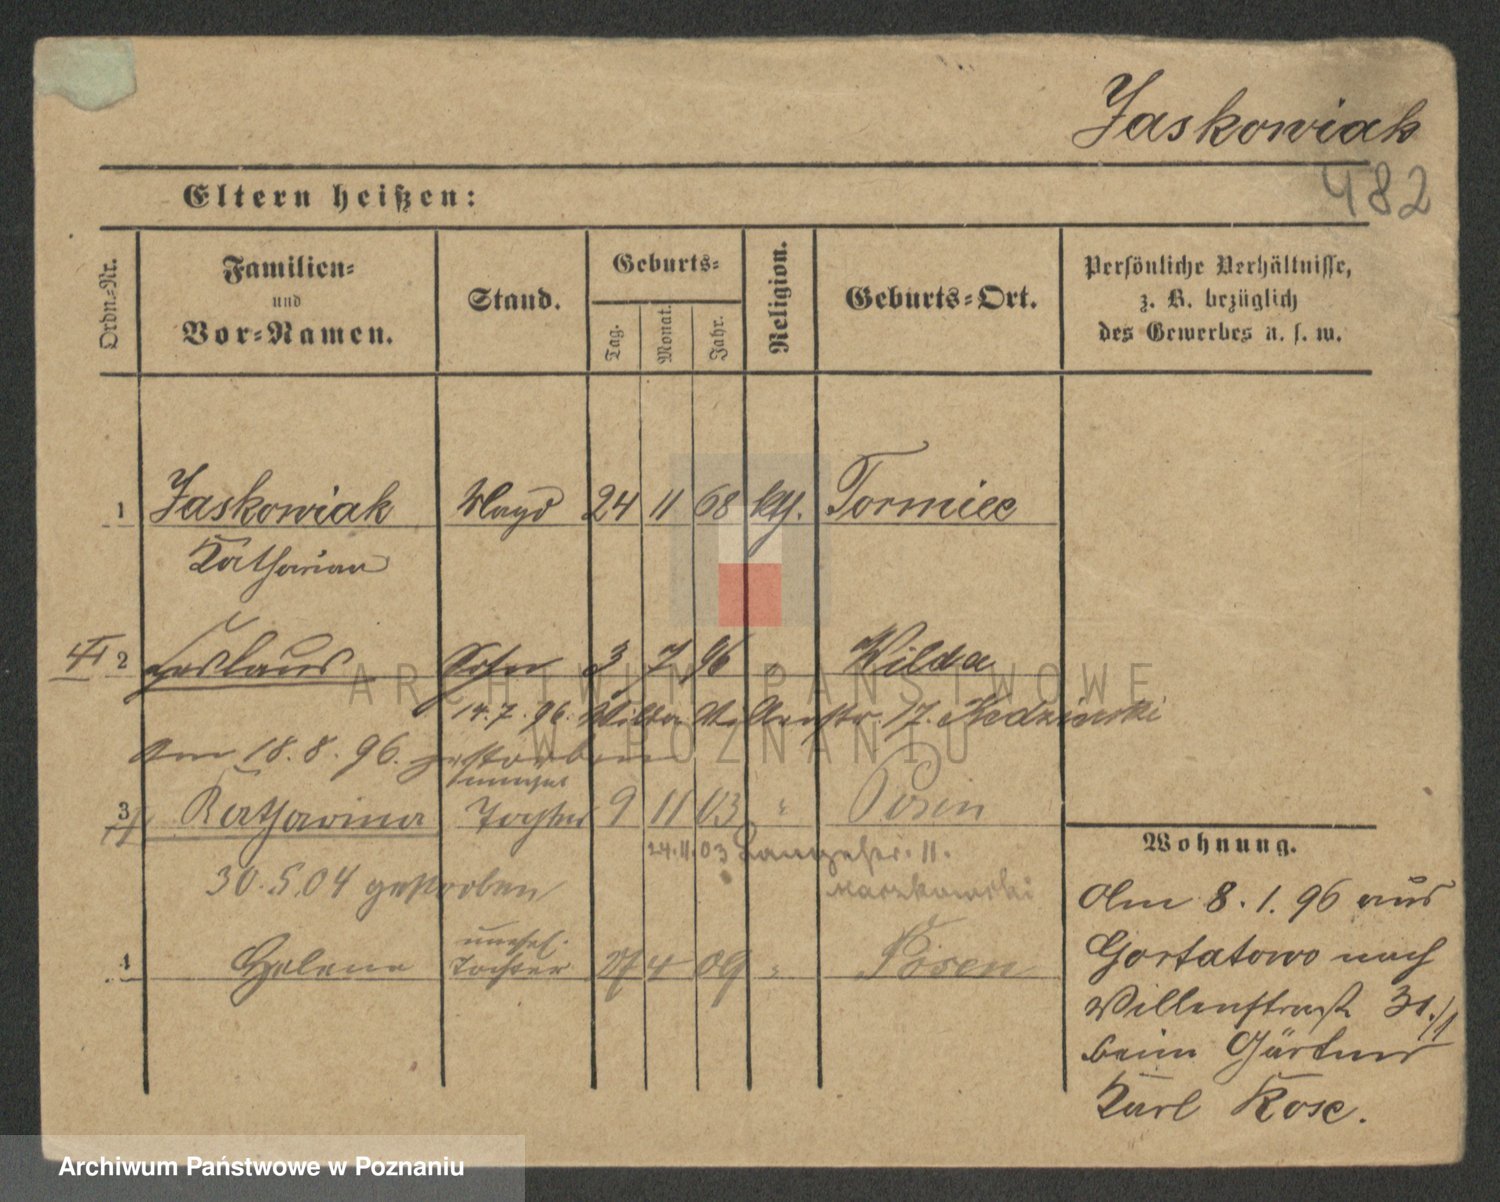 Jaskowiak
482
Eltern heißen:
Ordn.-Nr.
Familien-
und
Vor-Namen.
Stand.
Geburts-
Tag.
Monat.
Jahr.
Religion.
Geburts-Ort.
Persönliche Verhältnisse,
z. B. bezüglich
des Gewerbes u. s. w.
1 Jaskowiak Magd 24 11 68 kth. Tormiec
2 Sohn 3 7 96 " Wilda
14.7.96. Wilda Villenstr. 17. Kedzierski
Am 18.8.96. gestorben
unehel
3 Katharina Tochter 9 11 03 " Posen
24.11.03 Langestr. 11.
30.5.04 gestorben
unehel.
4 Helene Tochter 27 4 09 " Posen
Wohnung.
Am 8.1.96 aus
Gortatowo nach
Villenstraße
beim Gärtner
Karl Kose.
ARCHIWUM PAŃSTWOWE
W POZNANIU
Archiwum Państwowe w Poznaniu